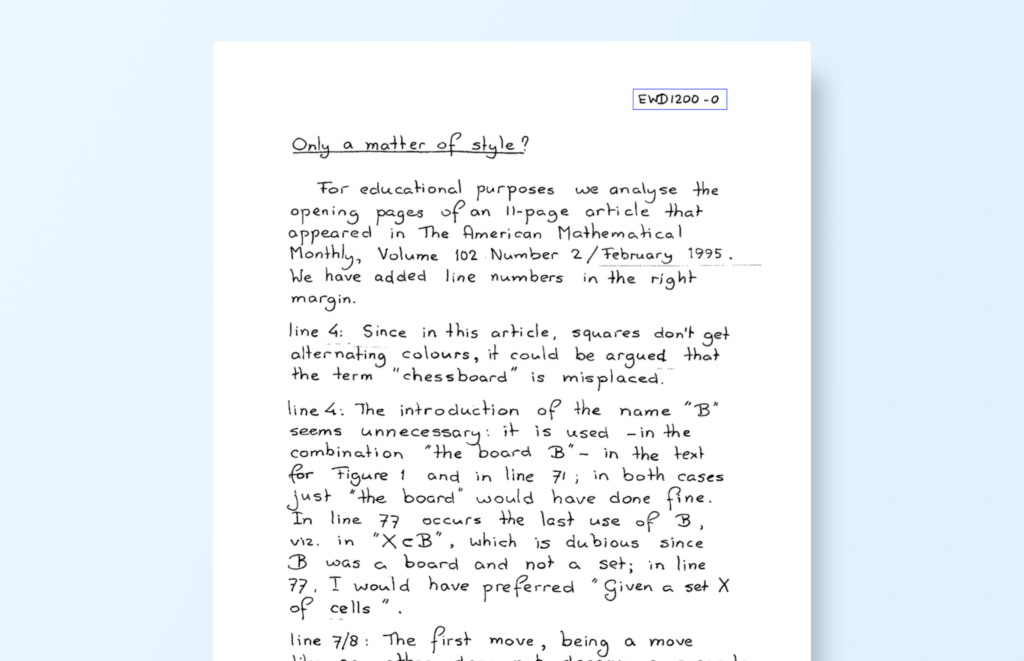 EWD1200-0
Only a matter of style?
For educational purposes we analyse the
opening pages of an 11-page article that
appeared in The American Mathematical
Monthly, Volume 102 Number 2/February 1995.
We have added line numbers in the right
margin.
line 4: Since in this article, squares don't get
alternating colours, it could be argued that
the term "chessboard" is misplaced.
line 4: The introduction of the name "B"
seems unnecessary: it is used -in the
combination "the board B"- in the text
for Figure 1 and in line 71; in both cases
just "the board" would have done fine.
In line 77 occurs the last use of B,
viz. in "X⊂B", which is dubious since
B was a board and not a set; in line
77, I would have preferred "Given a set X
of cells".
line 7/8: The first move, being a move